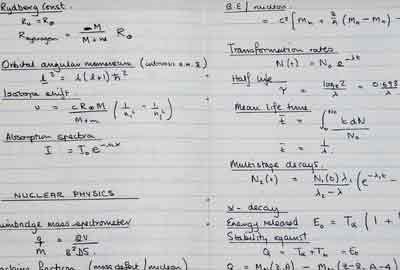 Rydberg Const.
R∞ = R∞
R hydrogen = M / M + m R∞
Orbital angular momentum (intrinsic a.m. s)
l² = l(l+1) ħ²
Isotope shift.
ν = c R∞ M / M + m ( 1/n² - 1/n² )
Absorption spectra
I = I₀ e^-nx
NUCLEAR PHYSICS
Bainbridge mass spectrometer
q / M = 2V / B²DS
fraction (mass defect / nucleon)
B.E / nucleon
= c² [ Mn + Z/A (MH - Mn) -
Transformation rates
N(t) = N₀ e^-λt
Half life
τ = loge 2 / λ = 0.693 / λ
Mean life time
t̄ = ∫ t dN / N₀
t̄ = 1/λ
Multistage decays.
N₂(t) = N₁(0) λ₁ / λ₂ - λ ( e^-λ₁t -
α - decay
Energy released E₀ = Tα ( 1 +
Stability against
Q = Tα + Th = E₀
Q = Mn (Z,A) - Mn (Z-2, A-4)